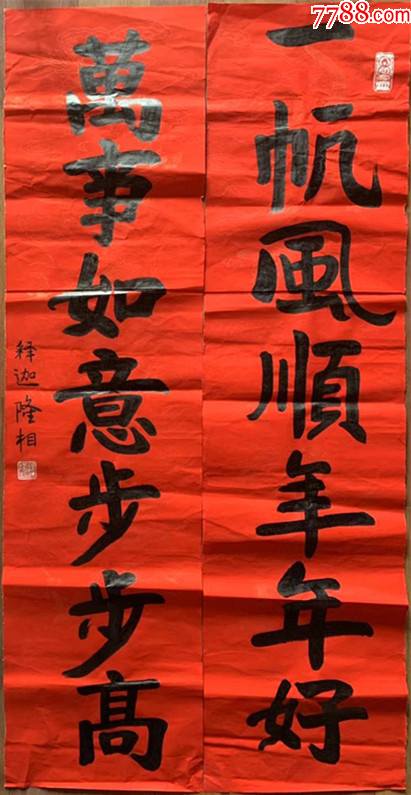 7788.com
一帆風順年年好
萬事如意步步高
释迦隆相